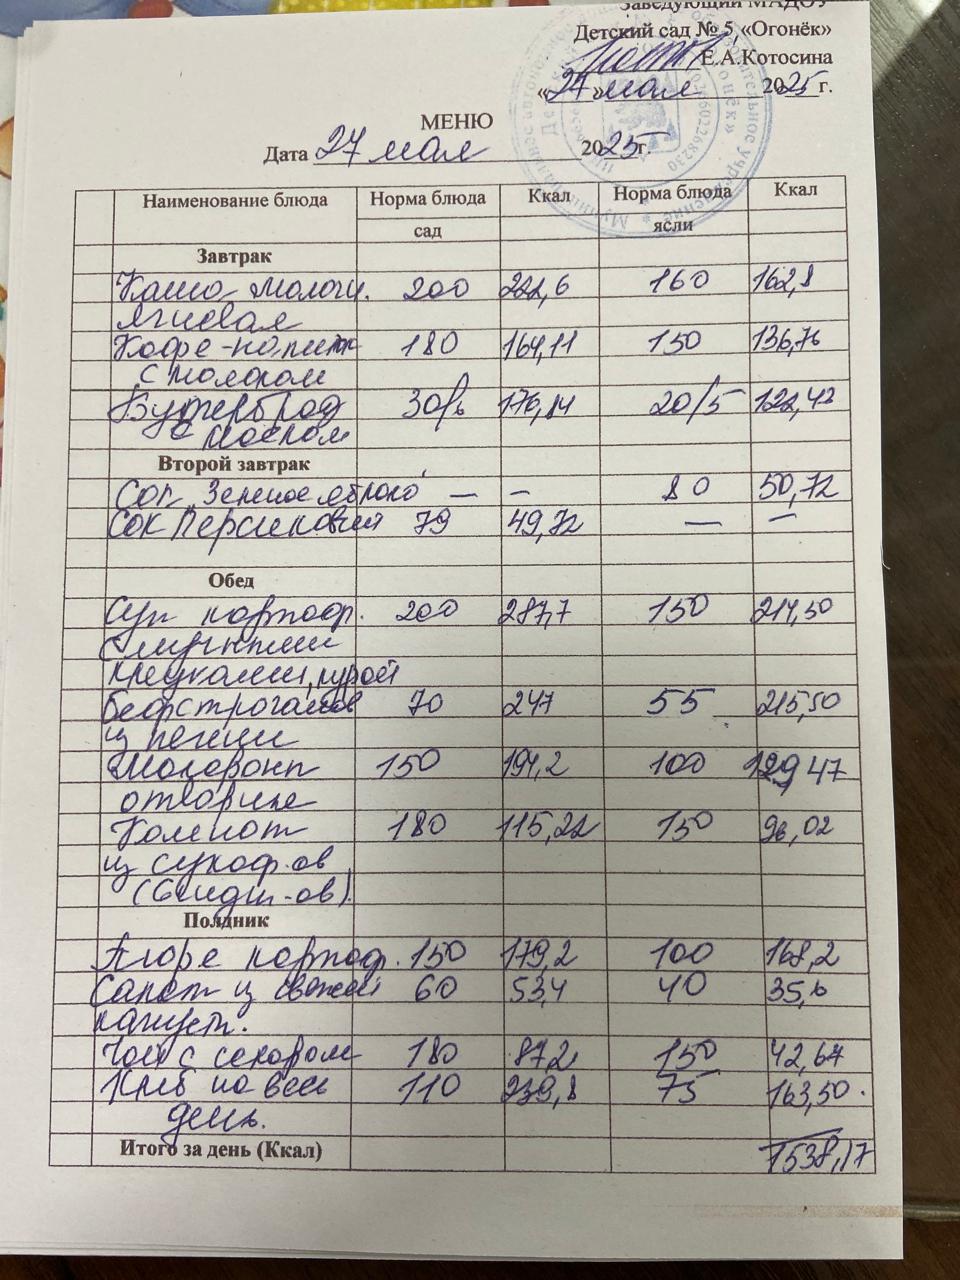 Заведующий МАДОУ
Детский сад № 5 «Огонёк»
Е.А.Котосина
«27» мая 2025 г.
МЕНЮ
Дата 27 мая 2025 г.
Наименование блюда Норма блюда Ккал Норма блюда Ккал
сад ясли
Завтрак
Каша молочн. 200 222,6 160 162,8
ячневая
Кофе-напиток 180 164,11 150 136,76
с молоком
Бутерброд 30/6 170,14 20/5 122,42
с маслом
Второй завтрак
Сок Зеленое яблоко — — 80 50,72
Сок Персиковый 79 49,72 — —
Обед
Суп картоф. 200 287,7 150 214,50
с мучными
клецками, курой
Бефстроганов 70 247 55 215,50
из печени
Макароны 150 194,2 100 129,47
отварные
Компот 180 115,22 150 96,02
из сухоф-ов
Полдник
Пюре картоф. 150 179,2 100 168,2
Салат из свежей 60 53,4 40 35,6
капуст.
Чай с сахаром 180 87,2 150 42,67
Хлеб на весь 110 239,8 75 163,50
день.
Итого за день (Ккал) 1538,17